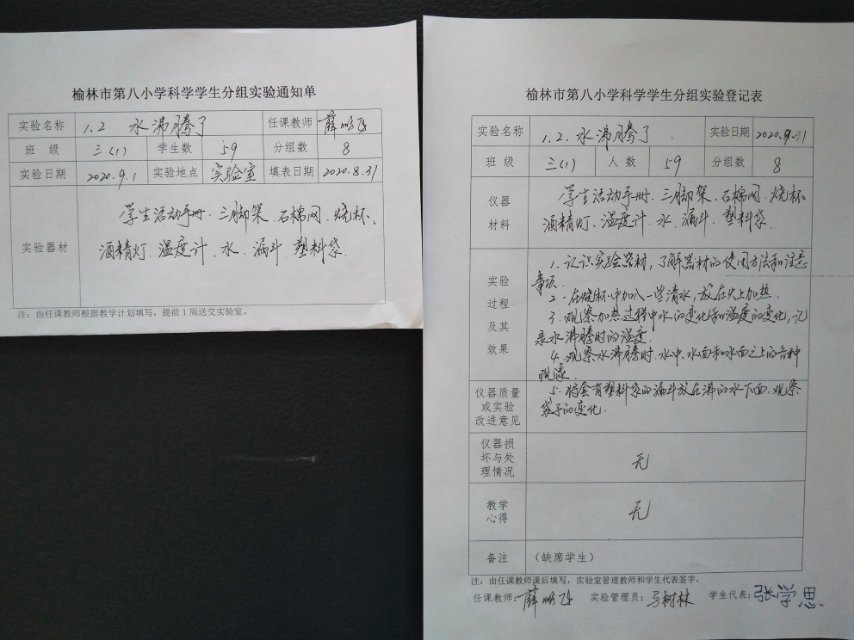 榆林市第八小学科学学生分组实验通知单
实验名称 1.2 水沸腾了 任课教师 薛鹏飞
班 级 三(1) 学生数 59 分组数 8
实验日期 2020.9.1 实验地点 实验室 填表日期 2020.8.31
实验器材
学生活动手册、三脚架、石棉网、烧杯、
酒精灯、温度计、水、漏斗、塑料袋.
注：由任课教师根据教学计划填写，提前1周送交实验室。
榆林市第八小学科学学生分组实验登记表
实验名称 1.2.水沸腾了. 实验日期 2020.9.1
班 级 三(1) 人 数 59 分组数 8
仪器
材料
学生活动手册、三脚架、石棉网、烧杯
酒精灯、温度计、水、漏斗、塑料袋.
实验
过程
及其
效果
1.认识实验器材，了解器材的使用方法和注意
事项.
2.在烧杯中加入一些清水，放在火上加热.
3.观察加热过程中水的变化和温度的变化，记
录水沸腾时的温度.
4.观察水沸腾时.水中.水面和水面之上的各种
现象.
5.将套有塑料袋的漏斗放在沸的水下面.观察
袋子的变化.
仪器质量
或实验
改进意见
仪器损
坏与处
理情况
无
教学
心得
无
备注 （缺席学生）
注：由任课教师课后填写，实验室管理教师和学生代表签字。
任课教师：薛鹏飞 实验管理员：马树林 学生代表：张学思